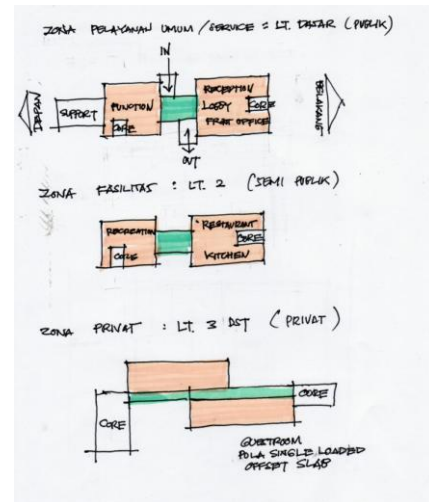 ZONA PELAYANAN UMUM / SERVICE = LT. DASAR (PUBLIK)
IN
DEPAN
SUPPORT
FUNCTION
CORE
RECEPTION
LOBBY
CORE
FRONT OFFICE
BELAKANG
OUT
ZONA FASILITAS : LT. 2 (SEMI PUBLIK)
RECREATION
CORE
RESTAURANT
CORE
KITCHEN
ZONA PRIVAT : LT. 3 DST (PRIVAT)
CORE
CORE
GUESTROOM
POLA SINGLE LOADED
OFFSET SLAB